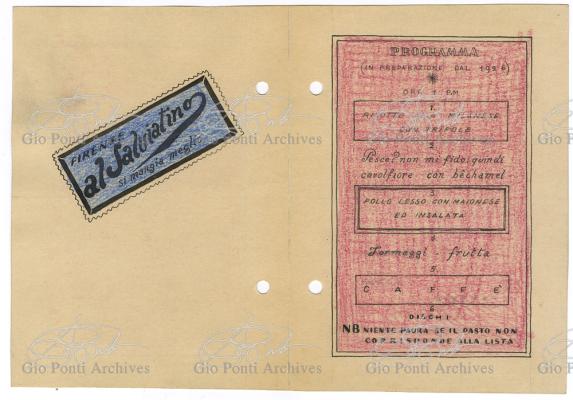 FIRENZE
al Salviatino
si mangia meglio
PROGRAMMA
(IN PREPARAZIONE DAL 1936)
ORE 1 PM
1.
RISOTTO ALLA MILANESE
CON TRIFOLE
2.
Pesce? non mi fido, quindi
cavolfiore con béchamel
3.
POLLO LESSO CON MAIONESE
ED INSALATA
4.
Formaggi - frutta
5.
CAFFE'
6.
DISCHI
NB NIENTE PAURA SE IL PASTO NON
CORRISPONDE ALLA LISTA
Gio Ponti Archives
Gio Ponti Archives
Gio Ponti Archives
Gio Ponti Archives
Gio Ponti Archives
Gio Ponti Archives
Gio Ponti Archives
Gio Ponti Archives
Gio Ponti Archives